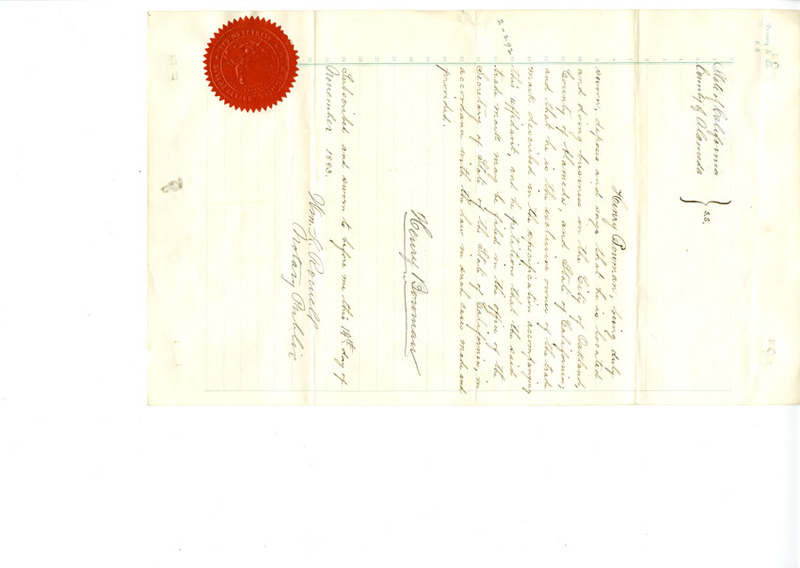 State of California
County of Alameda } S.S.
Henry Bowman, being duly
sworn, deposes and says that he is located
and doing business in the City of Oakland,
County of Alameda, and State of California,
and that he is the exclusive owner of the trade
mark described in the specification accompanying
this affidavit, and he petitions that the said
trade mark may be filed in the office of the
Secretary of State of the State of California, in
accordance with the law in such cases made and
provided.
Henry Bowman
Subscribed and sworn to before me this 19th day of
November 1883.
Notary Public